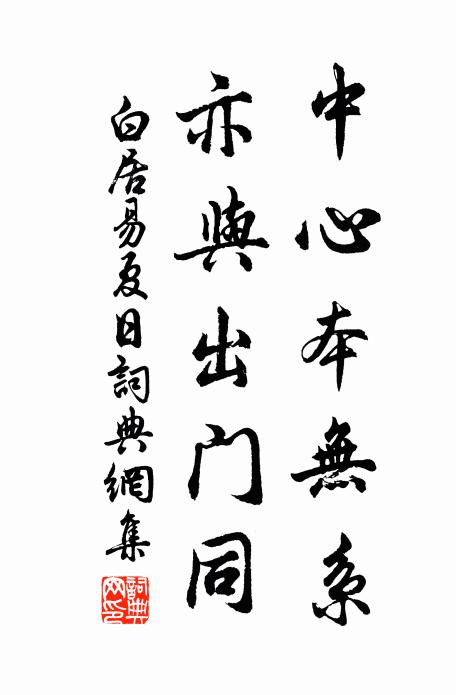 中心本無系
亦與出门同
白居易夏日詞典網集
詞典网印